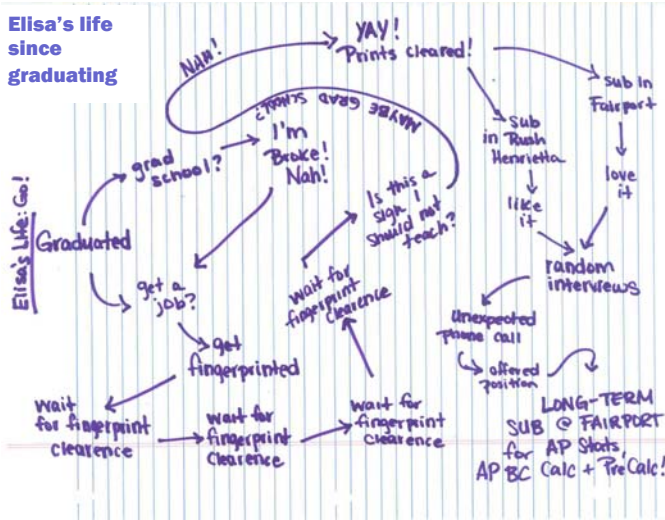 Elisa's life
since
graduating
Elisa's Life: Go!
Graduated
grad
school?
I'm
Broke!
Nah!
get a
job?
get
fingerprinted
wait
for fingerprint
clearence
wait for
fingerprint
clearence
wait for
fingerprint
clearence
wait for
fingerprint
clearence
Is this a
sign I
should not
teach?
MAYBE GRAD SCHOOL?
NAH!
YAY!
Prints cleared!
Sub
in Rush
Henrietta
like
it
Sub in
Fairport
love
it
random
interviews
Unexpected
phone call
offered
position
LONG-TERM
SUB @ FAIRPORT
for AP Stats,
AP BC Calc + PreCalc!